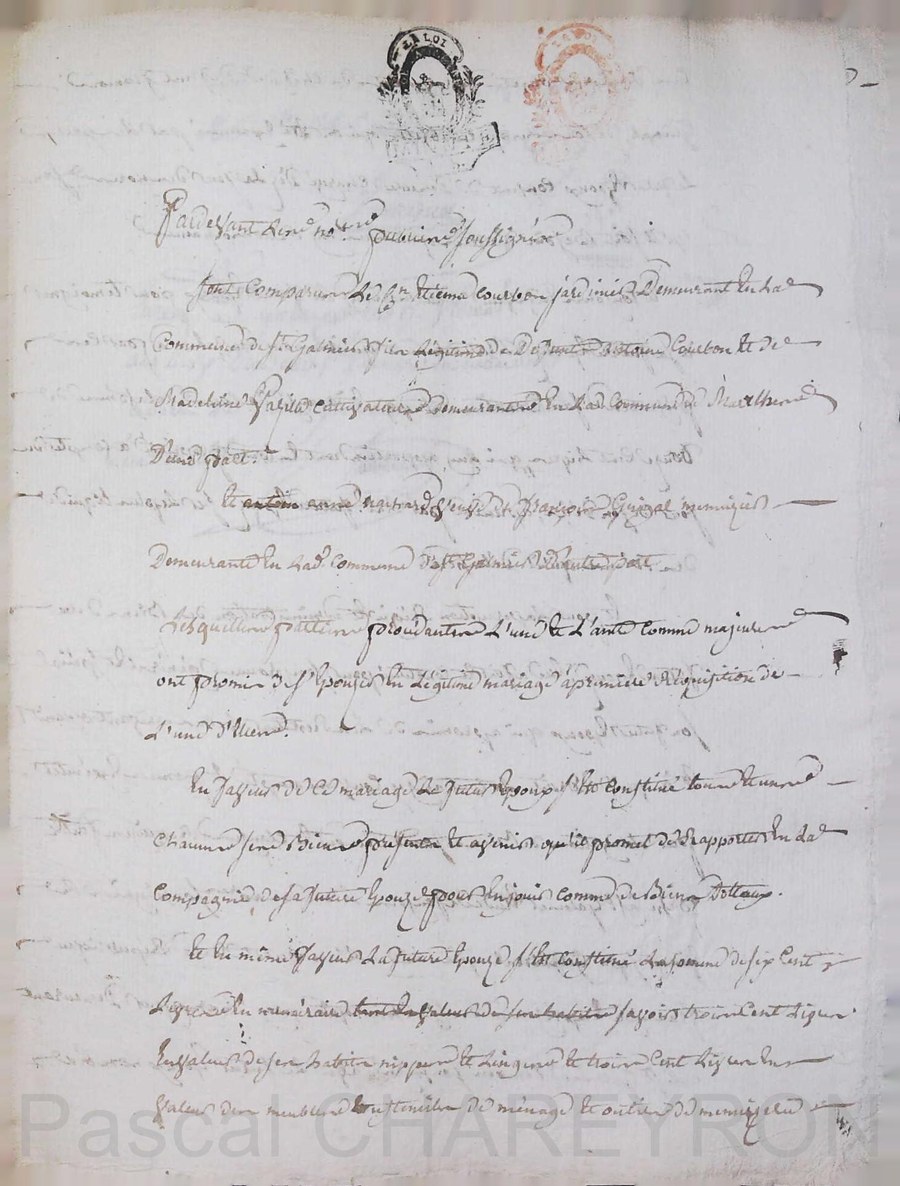 LA LOI
LA LOI
Pardevant les nores publics soussignés
sont comparus le sr. Etienne Courbon jardinier demeurant en la
Commune de St Galmier fils légitime de defunt Antoine Courbon et de
Madeleine cultivateurs demeurants en lad. commune de
D'une part
et antoin anne veuve de François menuizier
Demeurante en lad. commune de St Galmier d'autre part
Lesquelles parties procédantes l'une et l'autre comme majeures
ont promis de s'épouzer en légitime mariage à première réquisition de
L'une d'elles.
En faveur de ce mariage le futur époux s'est constitué tous et uns
chacuns ses biens présents et avenir qu'il promet de rapporter en la
compagnie de sa future épouze pour en jouir comme de biens dottaux.
Et en même faveur la future épouze s'est constitué la somme de six cent
livres en numéraire tant en valeur de ses habits savoir trois cent livres
en valeur de ses habits nippes et linges et trois cent livres en
valeur des meubles et ustensiles de ménage et outils de menuizerie
Pascal CHAREYRON